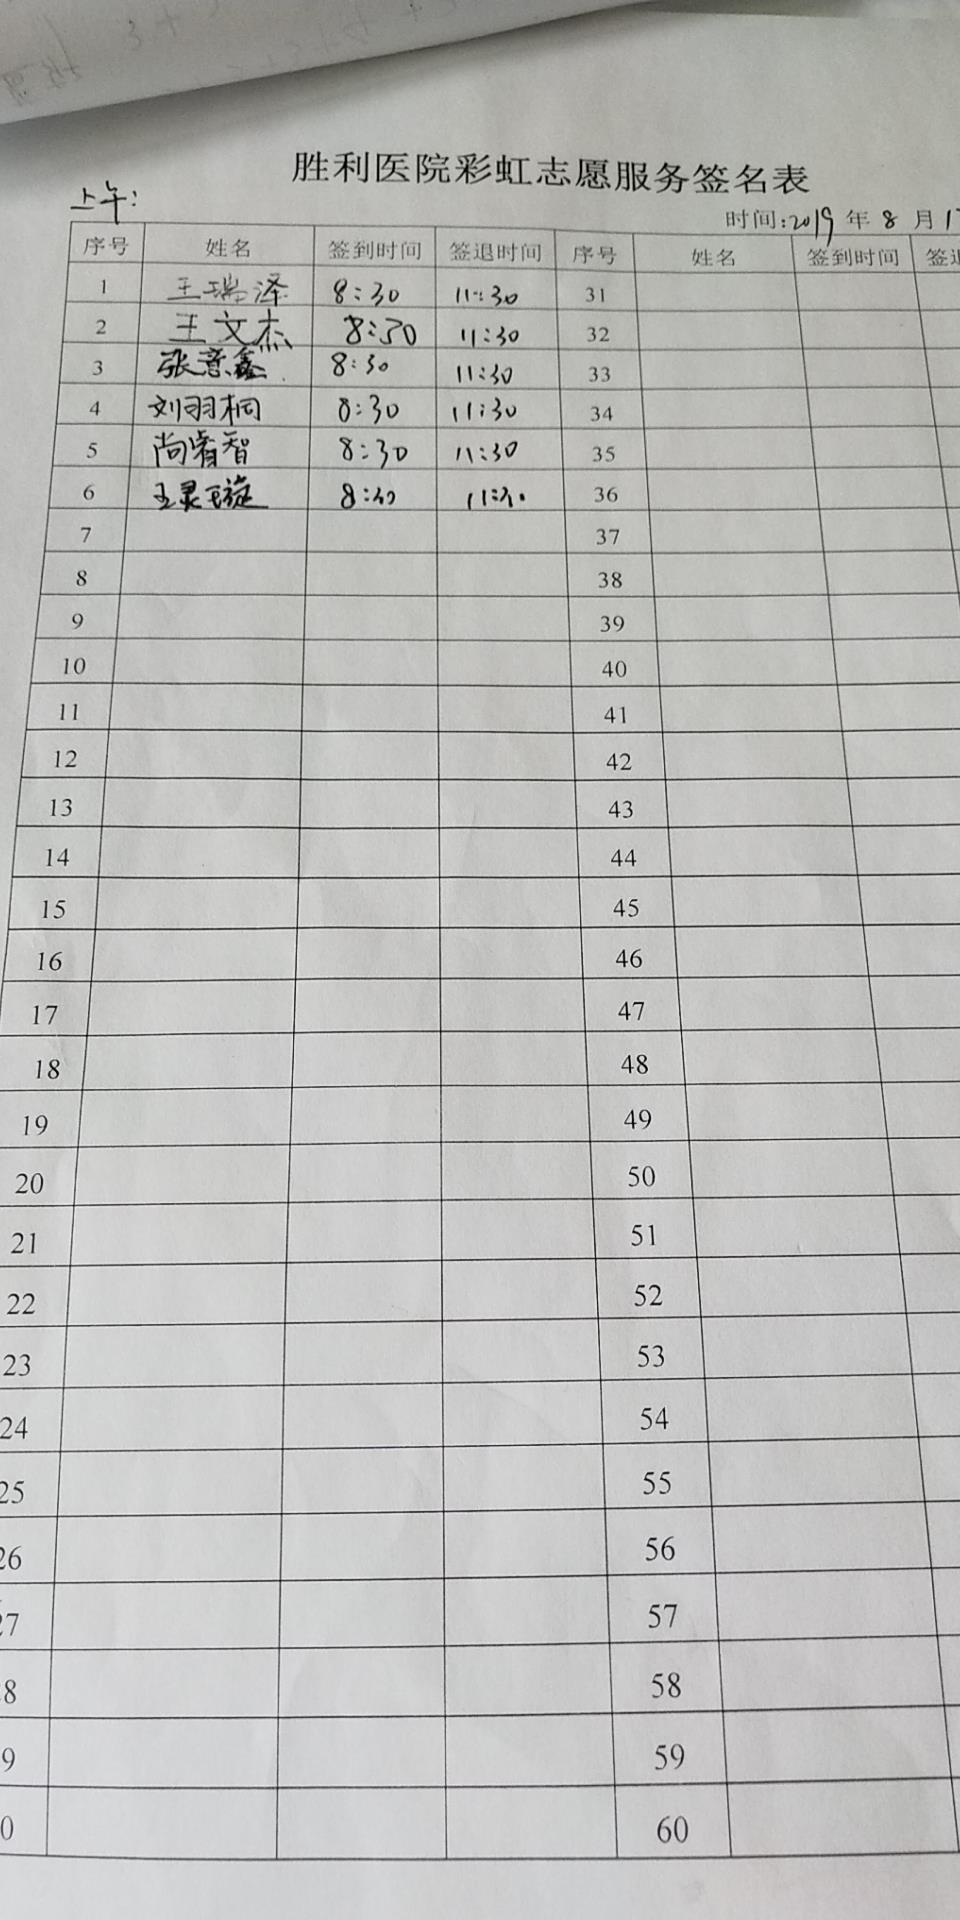 胜利医院彩虹志愿服务签名表
上午:
时间:2019年8月1
序号 姓名 签到时间 签退时间 序号 姓名 签到时间 签退
1 王瑞泽 8:30 11:30 31
2 王文杰 8:30 11:30 32
3 张意鑫 8:30 11:30 33
4 刘羽桐 8:30 11:30 34
5 尚睿智 8:30 11:30 35
6 王灵璇 8:30 11:30 36
7 37
8 38
9 39
10 40
11 41
12 42
13 43
14 44
15 45
16 46
17 47
18 48
19 49
20 50
21 51
22 52
23 53
24 54
25 55
26 56
27 57
8 58
9 59
0 60